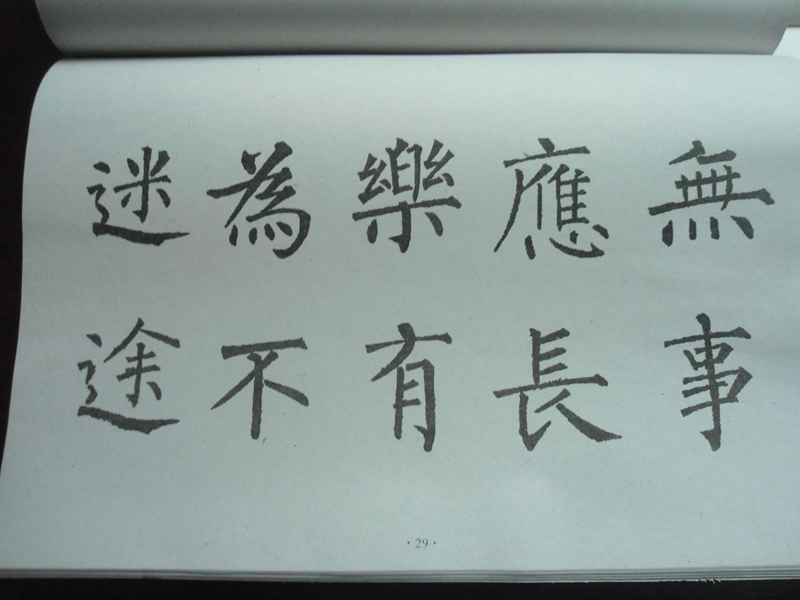 無事
應長
樂有
為不
迷途
·29·